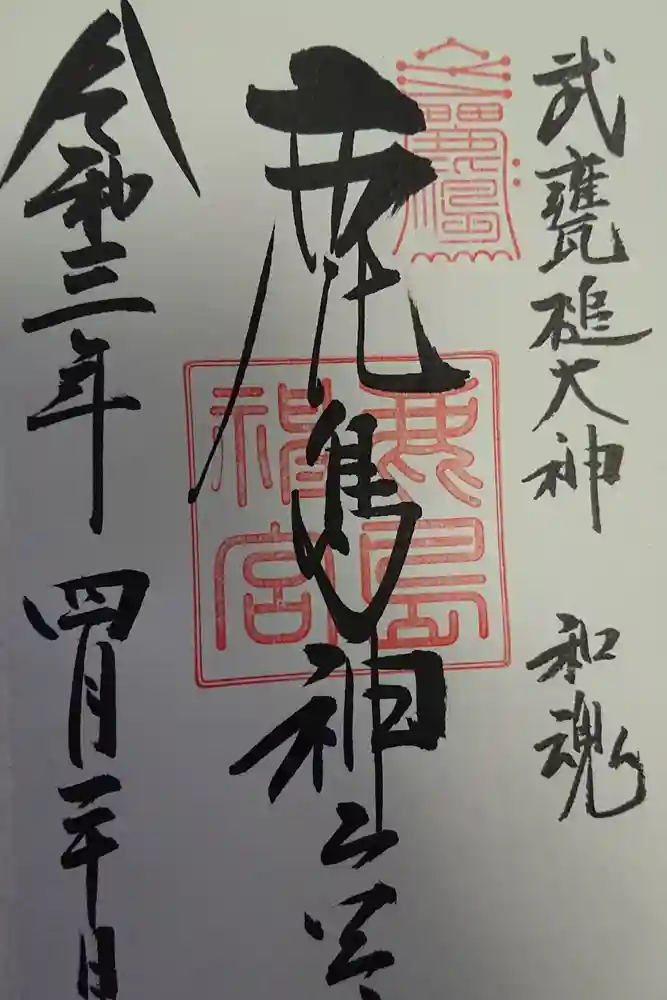 武甕槌大神 和魂
鹿島神宮
鹿島
神宮
令和三年 四月二十日